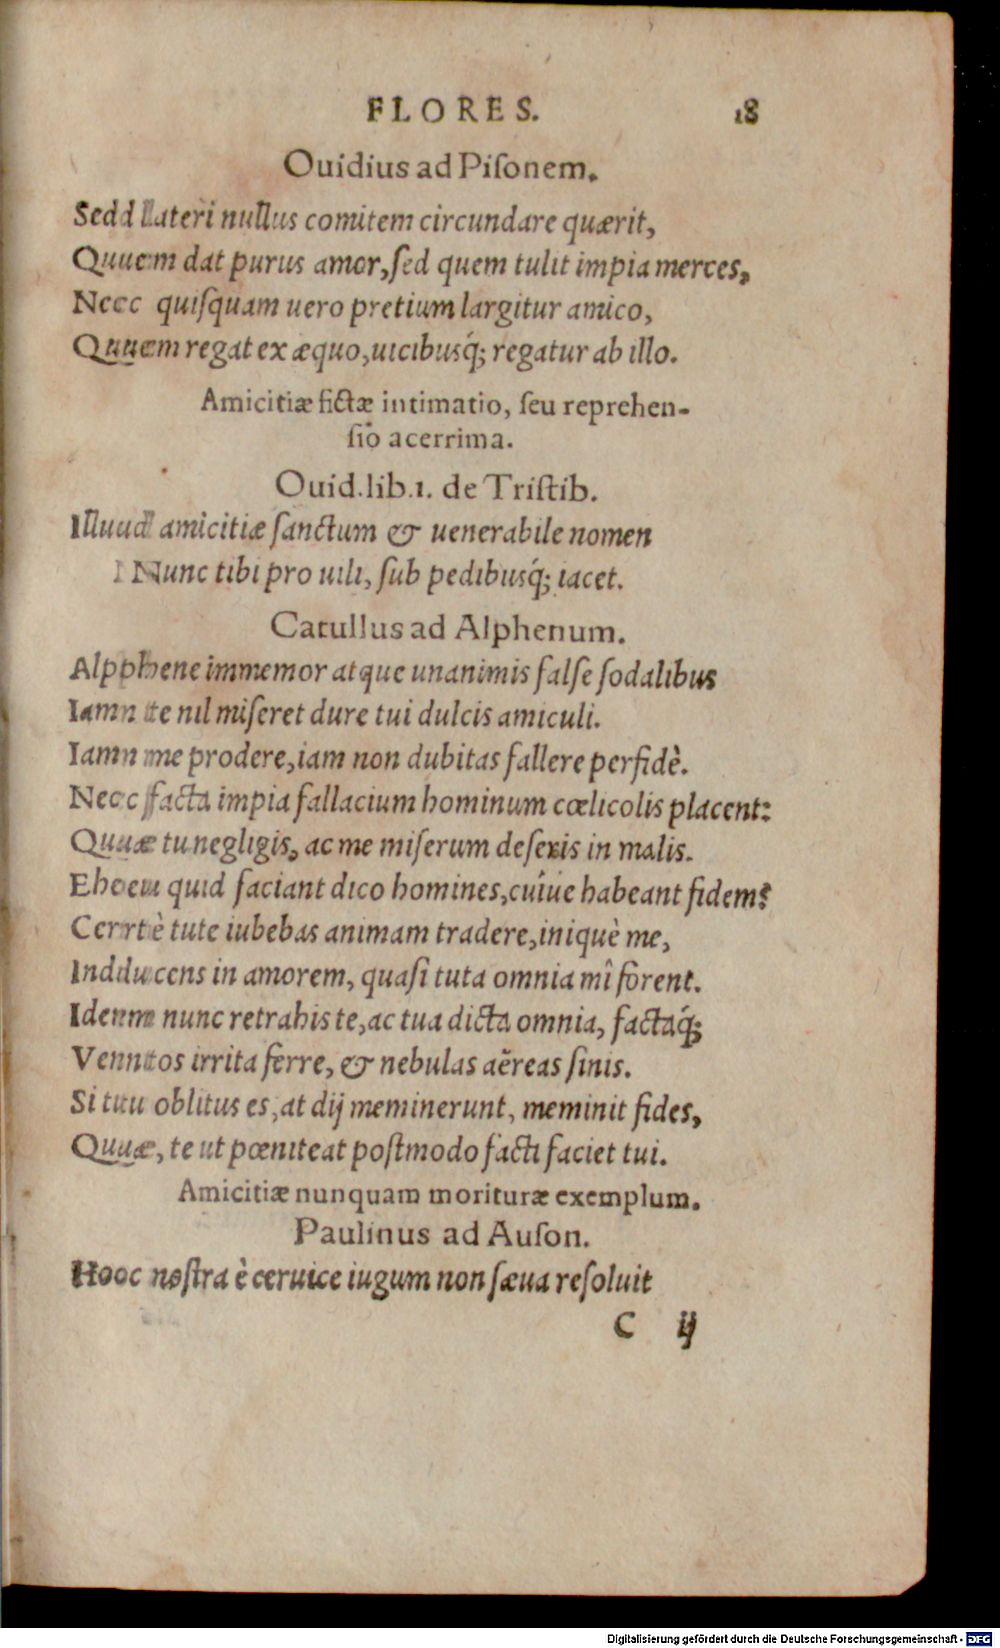 FLORES. 18
Ouidius ad Piſonem.
Sed lateri nullus comitem circundare quærit,
Quem dat purus amor, ſed quem tulit impia merces,
Nec quiſquam uero pretium largitur amico,
Quem regat ex æquo, uicibusq́; regatur ab illo.
Amicitiæ fictæ intimatio, ſeu reprehen-
ſio acerrima.
Ouid. lib. 1. de Triſtib.
Illud amicitiæ ſanctum & uenerabile nomen
Nunc tibi pro uili, ſub pedibusq́; iacet.
Catullus ad Alphenum.
Alphene immemor atque unanimis falſe ſodalibus
Iam te nil miſeret dure tui dulcis amiculi.
Iam me prodere, iam non dubitas fallere perfidè.
Nec facta impia fallacium hominum cœlicolis placent:
Quæ tu negligis, ac me miſerum deſeris in malis.
Eheu quid faciant dico homines, cuîue habeant fidem?
Certè tute iubebas animam tradere, iniquè me,
Inducens in amorem, quaſi tuta omnia mî forent.
Idem nunc retrahis te, ac tua dicta omnia, factaq́;
Ventos irrita ferre, & nebulas aëreas ſinis.
Si tu oblitus es, at dij meminerunt, meminit fides,
Quæ, te ut pœniteat poſtmodo facti faciet tui.
Amicitiæ nunquam morituræ exemplum.
Paulinus ad Auſon.
Hoc noſtra è ceruice iugum non ſæua reſoluit
C ij
Digitalisierung gefördert durch die Deutsche Forschungsgemeinschaft - DFG